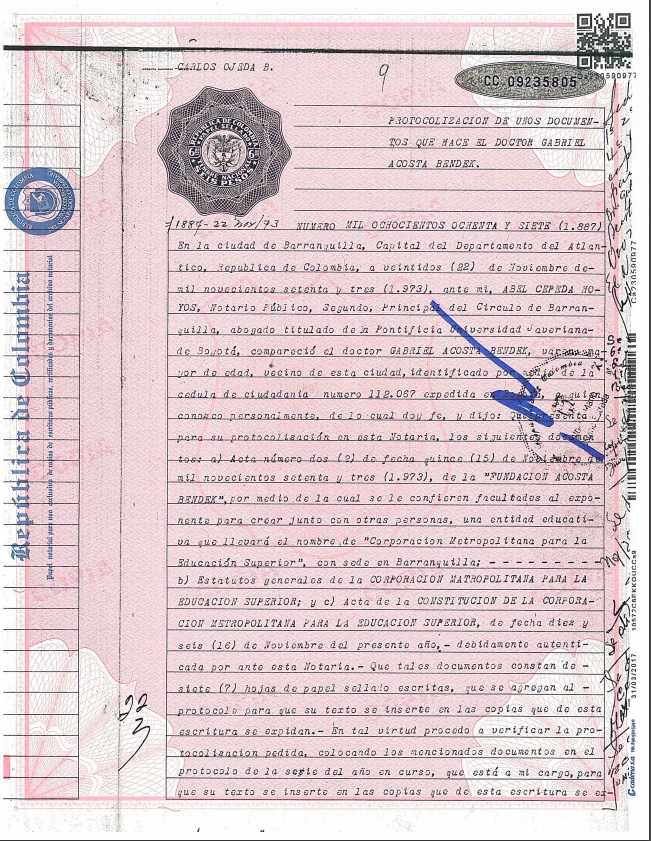 CARLOS OJEDA B.
9
CC 09235805
Ca230590977
PROTOCOLIZACION DE UNOS DOCUMEN-
TOS QUE HACE EL DOCTOR GABRIEL
ACOSTA BENDEK.
REPUBLICA DE COLOMBIA
PAPEL SELLADO
#1887-22 Nov/73 NUMERO MIL OCHOCIENTOS OCHENTA Y SIETE (1.887)
En la ciudad de Barranquilla, Capital del Departamento del Atlan-
tico, Republica de Colombia, a veintidos (22) de Noviembre de-
mil novecientos setenta y tres (1.973), ante mi, ABEL CEPEDA HO-
YOS, Notario Público, Segundo, Principal del Circulo de Barran-
quilla, abogado titulado de la Pontificia Universidad Javeriana-
de Bogotá, compareció el doctor GABRIEL ACOSTA BENDEK, varon, ma-
yor de edad, vecino de esta ciudad, identificado por de la
cedula de ciudadania numero 112.067 expedida en quien
conozco personalmente, de lo cual doy fe, y dijo: Que presenta
para su protocolización en esta Notaria, los siguientes documen
tos: a) Acta número dos (2) de fecha quince (15) de Noviembre de
mil novecientos setenta y tres (1.973), de la "FUNDACION ACOSTA
BENDEK", por medio de la cual se le confieren facultades al expo-
nente para crear junto con otras personas, una entidad educati-
va que llevará el nombre de "Corporacion Metropolitana para la
Educación Superior", con sede en Barranquilla; - - - - - - - - - -
b) Estatutos generales de la CORPORACION MATROPOLITANA PARA LA
EDUCACION SUPERIOR; y c) Acta de la CONSTITUCION DE LA CORPORA-
CION METROPOLITANA PARA LA EDUCACION SUPERIOR, de fecha diez y
seis (16) de Noviembre del presente año,- debidamente autenti-
cada por ante esta Notaria.- Que tales documentos constan de -
siete (7) hojas de papel sellado escritas, que se agregan al -
protocolo para que su texto se inserte en las copias que de esta
escritura se expidan.- En tal virtud procedo a verificar la pro-
tocolización pedida, colocando los mencionados documentos en el
protocolo de la serie del año en curso, que está a mi cargo, para
que su texto se inserte en las copias que de esta escritura se ex-
22
3
República de Colombia
Papel notarial para uso exclusivo de copias de escrituras públicas, certificados y documentos del archivo notarial
Ca230590977
31/03/2017